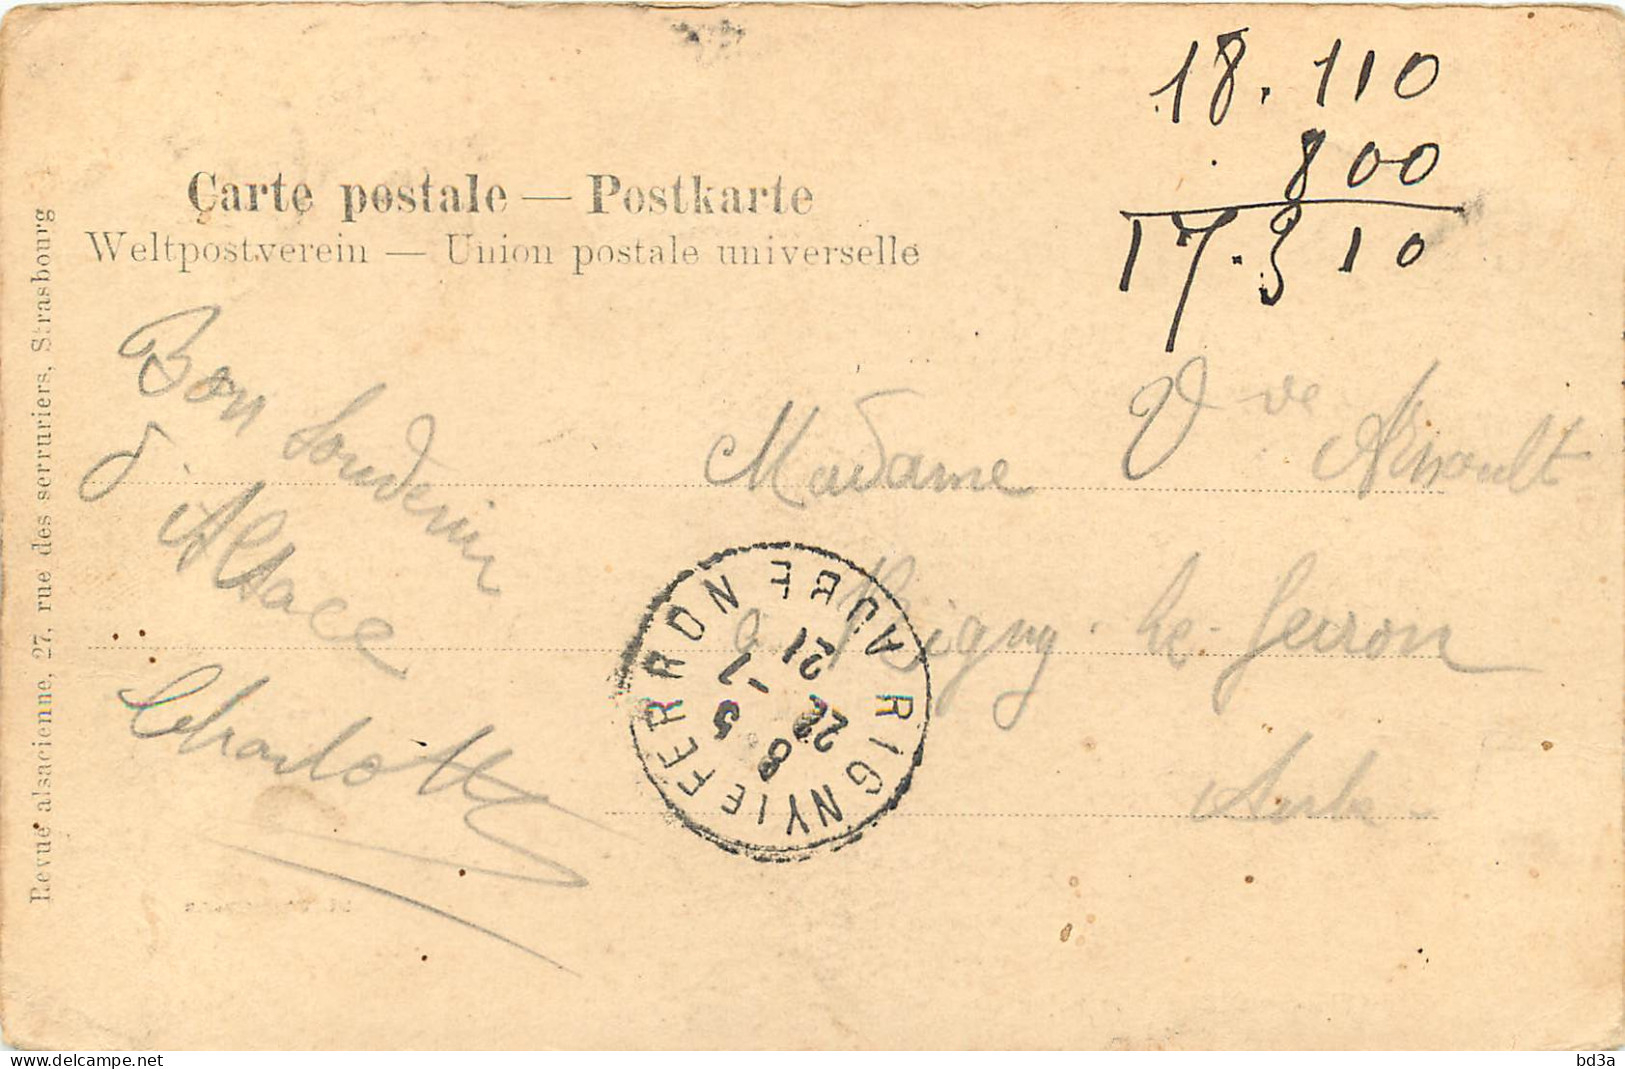 18.110
800
17.310
Carte postale — Postkarte
Weltpostverein — Union postale universelle
Revue alsacienne, 27, rue des serruriers, Strasbourg
Bon Souvenir
d'Alsace
Charlotte
Madame Vve Arnoult
à Rigny-le-Ferron
Aube
RIGNY LE FERRON AUBE
8 5
22 -7
21
www.delcampe.net
bd3a